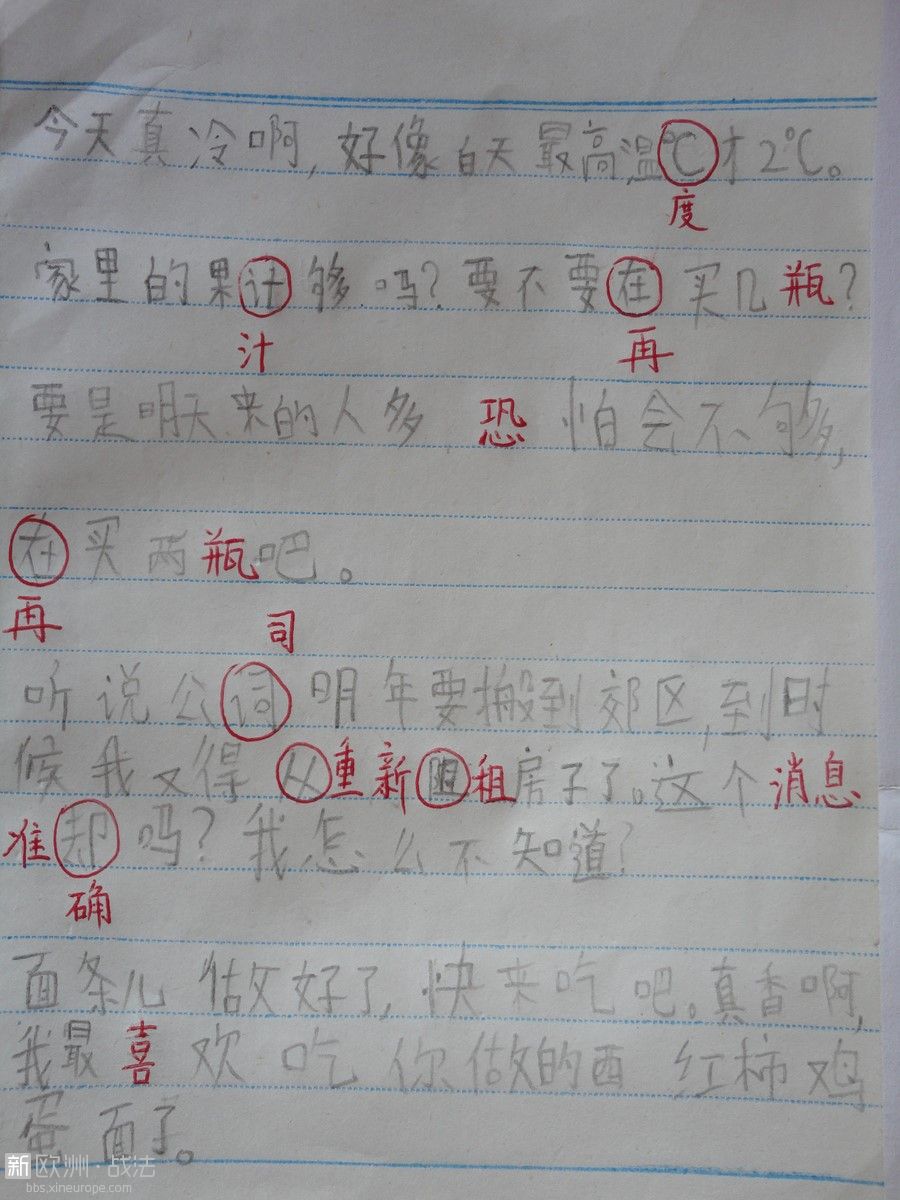 今天真冷啊,好像白天最高温℃才2℃。
度
家里的果计够吗?要不要在买几瓶?
汁 再
要是明天来的人多 恐怕会不够,
在买两瓶吧。
再 司
听说公词明年要搬到郊区,到时
候我又得从重新阻租房子了。这个消息
准却吗?我怎么不知道?
确
面条儿做好了,快来吃吧。真香啊,
我最喜欢吃你做的西红柿鸡
蛋面了。
新欧洲·战法
bbs.xineurope.com